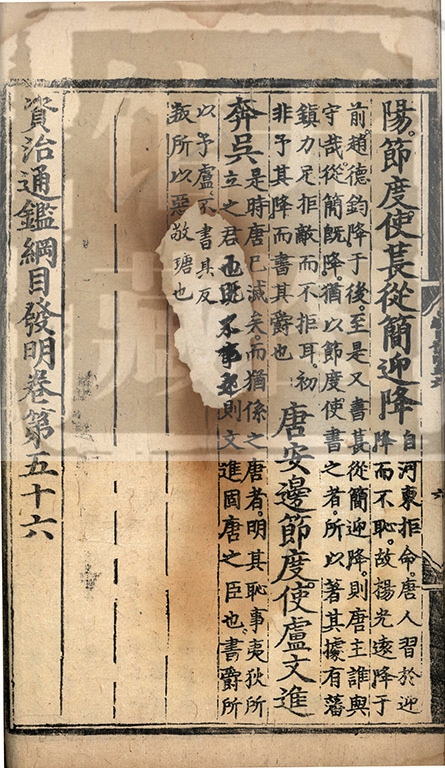 陽。節度使萇從簡迎降
自河東拒命。唐人習於迎
降而不恥。故楊光遠降于
前。趙德鈞降于後。至是又書萇從簡迎降。則唐主誰與
守哉。從簡旣降。猶以節度使書之者。所以著其據有藩
鎮力足拒敵而不拒耳。初
非予其降而書其爵也
唐安邊節度使盧文進
奔吳
是時唐已滅矣。而猶係之唐者。明其恥事夷狄所
立之君也旣不事 則文進固唐之臣也。書爵所
以予盧 不書其反
叛所以惡敬瑭也
資治通鑑綱目發明卷第五十六